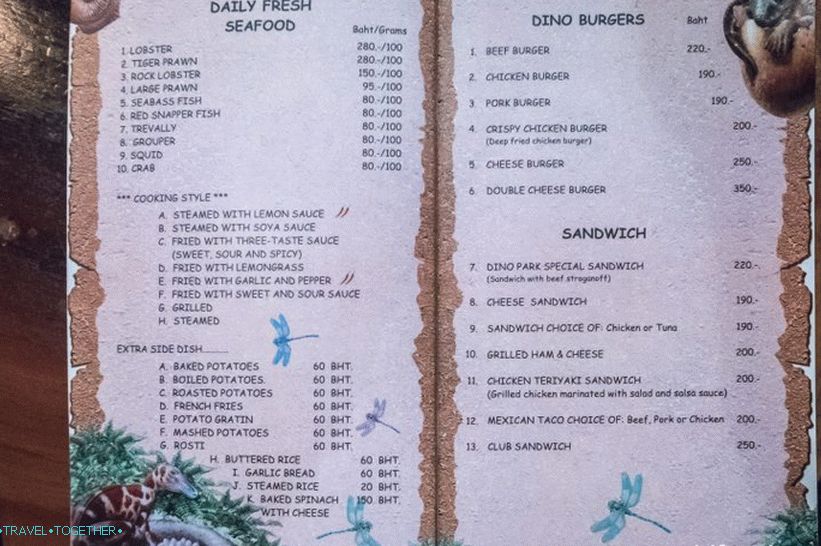 DAILY FRESH
SEAFOOD
Baht/Grams
1. LOBSTER 280.-/100
2. TIGER PRAWN 280.-/100
3. ROCK LOBSTER 150.-/100
4. LARGE PRAWN 95.-/100
5. SEABASS FISH 80.-/100
6. RED SNAPPER FISH 80.-/100
7. TREVALLY 80.-/100
8. GROUPER 80.-/100
9. SQUID 80.-/100
10. CRAB 80.-/100
*** COOKING STYLE ***
A. STEAMED WITH LEMON SAUCE
B. STEAMED WITH SOYA SAUCE
C. FRIED WITH THREE-TASTE SAUCE
(SWEET, SOUR AND SPICY)
D. FRIED WITH LEMONGRASS
E. FRIED WITH GARLIC AND PEPPER
F. FRIED WITH SWEET AND SOUR SAUCE
G. GRILLED
H. STEAMED
EXTRA SIDE DISH..........
A. BAKED POTATOES 60 BHT.
B. BOILED POTATOES. 60 BHT.
C. ROASTED POTATOES 60 BHT.
D. FRENCH FRIES 60 BHT.
E. POTATO GRATIN 60 BHT.
F. MASHED POTATOES 60 BHT.
G. ROSTI 60 BHT.
H. BUTTERED RICE 60 BHT.
I. GARLIC BREAD 60 BHT.
J. STEAMED RICE 20 BHT.
K. BAKED SPINACH 150 BHT.
WITH CHEESE
DINO BURGERS Baht
1. BEEF BURGER 220.-
2. CHICKEN BURGER 190.-
3. PORK BURGER 190.-
4. CRISPY CHICKEN BURGER 200.-
(Deep fried chicken burger)
5. CHEESE BURGER 250.-
6. DOUBLE CHEESE BURGER 350.-
SANDWICH
7. DINO PARK SPECIAL SANDWICH 220.-
(Sandwich with beef stroganoff)
8. CHEESE SANDWICH 190.-
9. SANDWICH CHOICE OF: Chicken or Tuna 190.-
10. GRILLED HAM & CHEESE 200.-
11. CHICKEN TERIYAKI SANDWICH 200.-
(Grilled chicken marinated with salad and salsa sauce)
12. MEXICAN TACO CHOICE OF: Beef, Pork or Chicken 200.-
13. CLUB SANDWICH 250.-
•TRAVEL•TOGETHER•